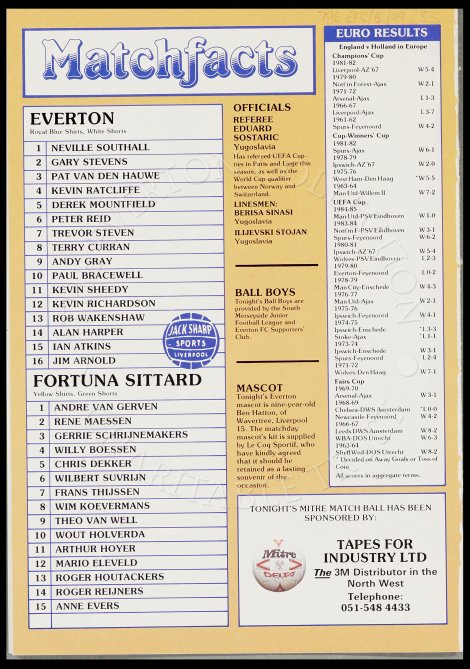 Matchfacts
EVERTON
Royal Blue Shirts, White Shorts
1 NEVILLE SOUTHALL
2 GARY STEVENS
3 PAT VAN DEN HAUWE
4 KEVIN RATCLIFFE
5 DEREK MOUNTFIELD
6 PETER REID
7 TREVOR STEVEN
8 TERRY CURRAN
9 ANDY GRAY
10 PAUL BRACEWELL
11 KEVIN SHEEDY
12 KEVIN RICHARDSON
13 ROB WAKENSHAW
14 ALAN HARPER
15 IAN ATKINS
16 JIM ARNOLD
JACK SHARP
SPORTS
LIVERPOOL
FORTUNA SITTARD
Yellow Shirts, Green Shorts
1 ANDRE VAN GERVEN
2 RENE MAESSEN
3 GERRIE SCHRIJNEMAKERS
4 WILLY BOESSEN
5 CHRIS DEKKER
6 WILBERT SUVRIJN
7 FRANS THIJSSEN
8 WIM KOEVERMANS
9 THEO VAN WELL
10 WOUT HOLVERDA
11 ARTHUR HOYER
12 MARIO ELEVELD
13 ROGER HOUTACKERS
14 ROGER REIJNERS
15 ANNE EVERS
OFFICIALS
REFEREE
EDUARD
SOSTARIC
Yugoslavia
Has refereed UEFA Cup-
ties in Paris and Liege this
season, as well as the
World Cup qualifier
between Norway and
Switzerland.
LINESMEN:
BERISA SINASI
Yugoslavia
ILIJVESKI STOJAN
Yugoslavia
BALL BOYS
Tonight's Ball Boys are
provided by the South
Merseyside Junior
Football League and
Everton FC Supporters'
Club.
MASCOT
Tonight's Everton
mascot is nine-year-old
Ben Hatton, of
Wavertree, Liverpool
15. The matchday
mascot's kit is supplied
by Le Coq Sportif, who
have kindly agreed
that it should be
retained as a lasting
souvenir of the
occasion.
EURO RESULTS
England v Holland in Europe
Champions' Cup
1981-82
Liverpool-AZ'67 W 5-4
1979-80
Nott'm Forest-Ajax W 2-1
1971-72
Arsenal-Ajax L 1-3
1966-67
Liverpool-Ajax L 3-7
1961-62
Spurs-Feyenoord W 4-2
Cup-Winners' Cup
1981-82
Spurs-Ajax W 6-1
1978-79
Ipswich-AZ'67 W 2-0
1975-76
West Ham-Den Haag *W 5-5
1963-64
Man Utd-Willem II W 7-2
UEFA Cup
1984-85
Man Utd-PSV Eindhoven W 1-0
1983-84
Nott'm F-PSV Eindhoven W 3-1
Spurs-Feyenoord W 6-2
1980-81
Ipswich-AZ'67 W 5-4
Wolves-PSV Eindhoven L 2-3
1979-80
Everton-Feyenoord L 0-2
1978-79
Man City-Enschede W 4-3
1976-77
Man Utd-Ajax W 2-1
1975-76
Ipswich-Feyenoord W 4-1
1974-75
Ipswich-Enschede *L 3-3
Stoke-Ajax *L 1-1
1973-74
Ipswich-Enschede W 3-1
Spurs-Feyenoord L 2-4
1971-72
Wolves-Den Haag W 7-1
Fairs Cup
1969-70
Arsenal-Ajax W 3-1
1968-69
Chelsea-DWS Amsterdam *L 0-0
Newcastle-Feyenoord W 4-2
1966-67
Leeds-DWS Amsterdam W 8-2
WBA-DOS Utrecht W 6-3
1963-64
Sheff Wed-DOS Utrecht W 8-2
* Decided on Away Goals or Toss of
Coin
All scores in aggregate terms.
TONIGHT'S MITRE MATCH BALL HAS BEEN
SPONSORED BY:
Mitre
DELTA
TAPES FOR
INDUSTRY LTD
The 3M Distributor in the
North West
Telephone:
051-548 4433